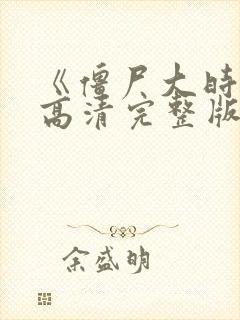 《僵尸大时
高清完整版
余盛明